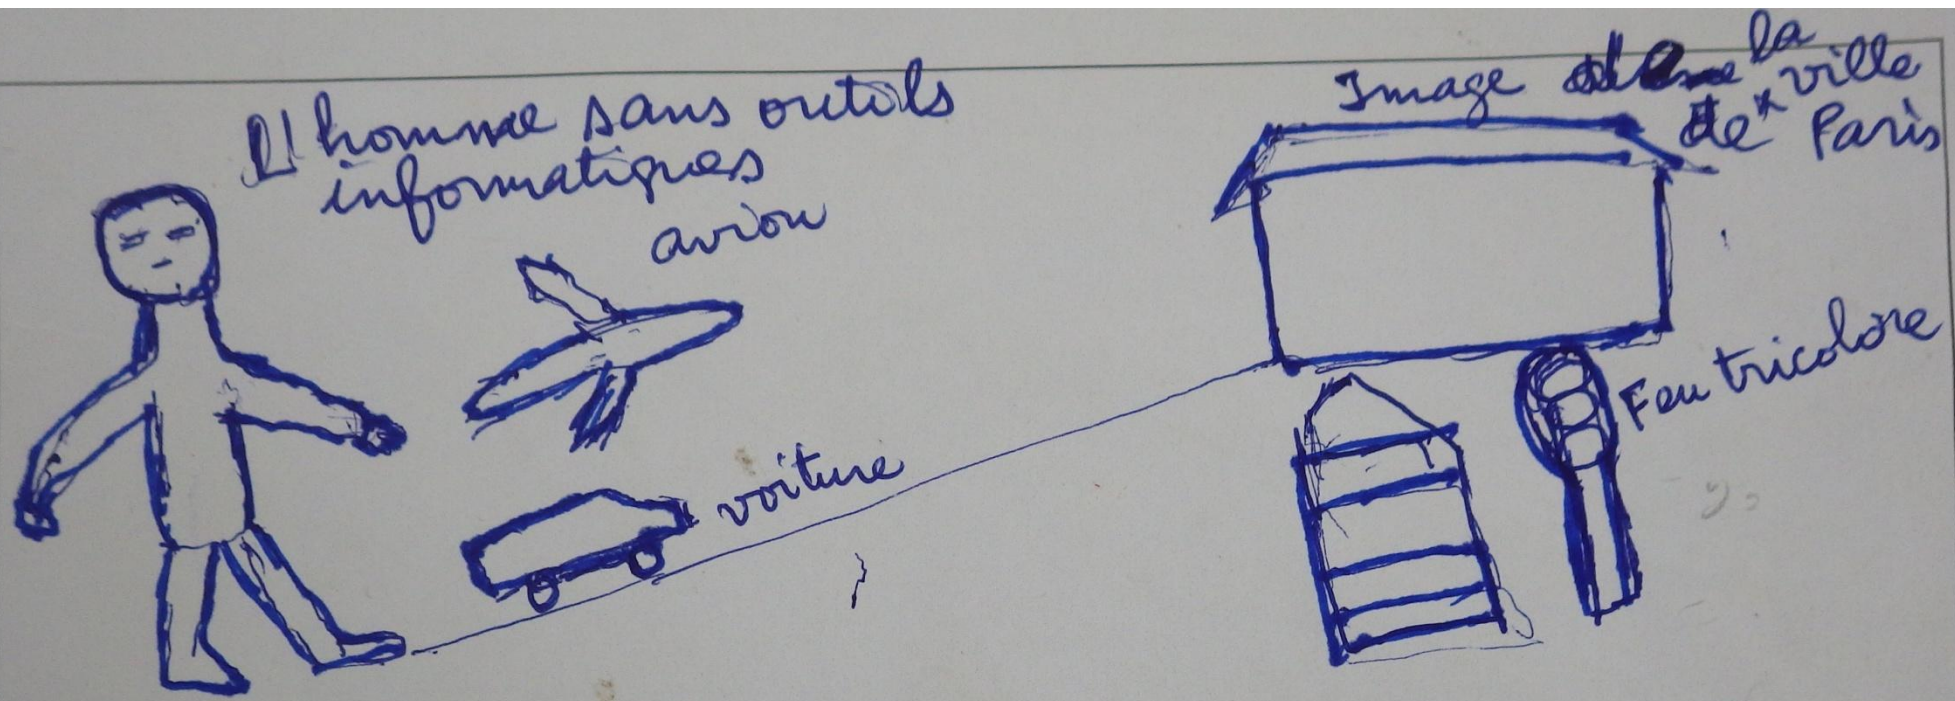 L'homme sans outils
informatiques
avion
voiture
Image de la ville
de Paris
Feu tricolore